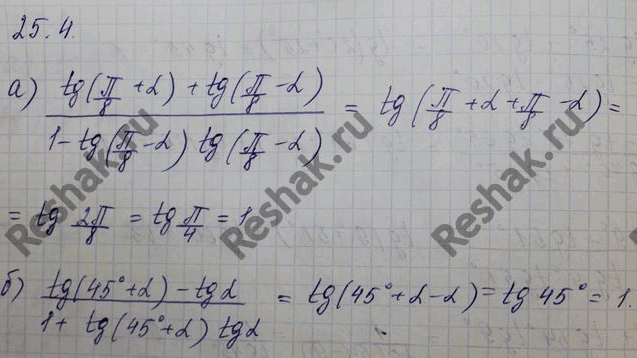 25.4.
а) (tg(π/8 + α) + tg(π/8 - α)) / (1 - tg(π/8 - α) tg(π/8 - α)) = tg(π/8 + α + π/8 - α) =
= tg 2π/8 = tg π/4 = 1
б) (tg(45° + α) - tgα) / (1 + tg(45° + α) tgα) = tg(45° + α - α) = tg 45° = 1.
Reshak.ru
Reshak.ru
Reshak.ru